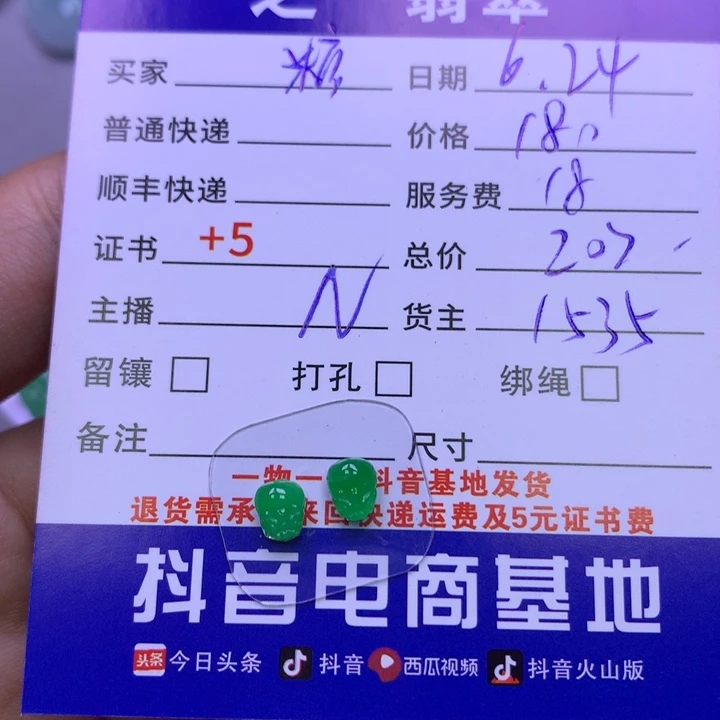 之 翡翠
买家 糖 日期 6.24
普通快递 价格 180
顺丰快递 服务费 18
证书 +5 总价 203
主播 N 货主 1535
留镶 打孔 绑绳
备注 尺寸
一物一 抖音基地发货
退货需承 来回快递运费及5元证书费
抖音电商基地
头条 今日头条 抖音 西瓜视频 抖音火山版